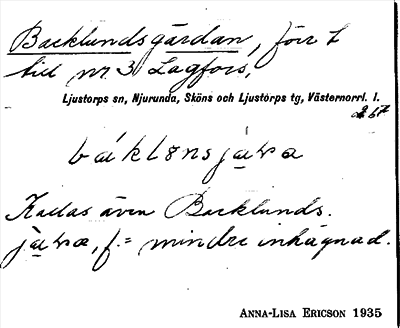 Backlundsgärdan, förr t
till nr 3 Lagfors,
Ljustorps sn, Njurunda, Sköns och Ljustorps tg, Västernorrl. l.
báklønsjaʋa
Kallas även Backlunds.
jàʋa, f. = mindre inhägnad.
ANNA-LISA ERICSON 1935